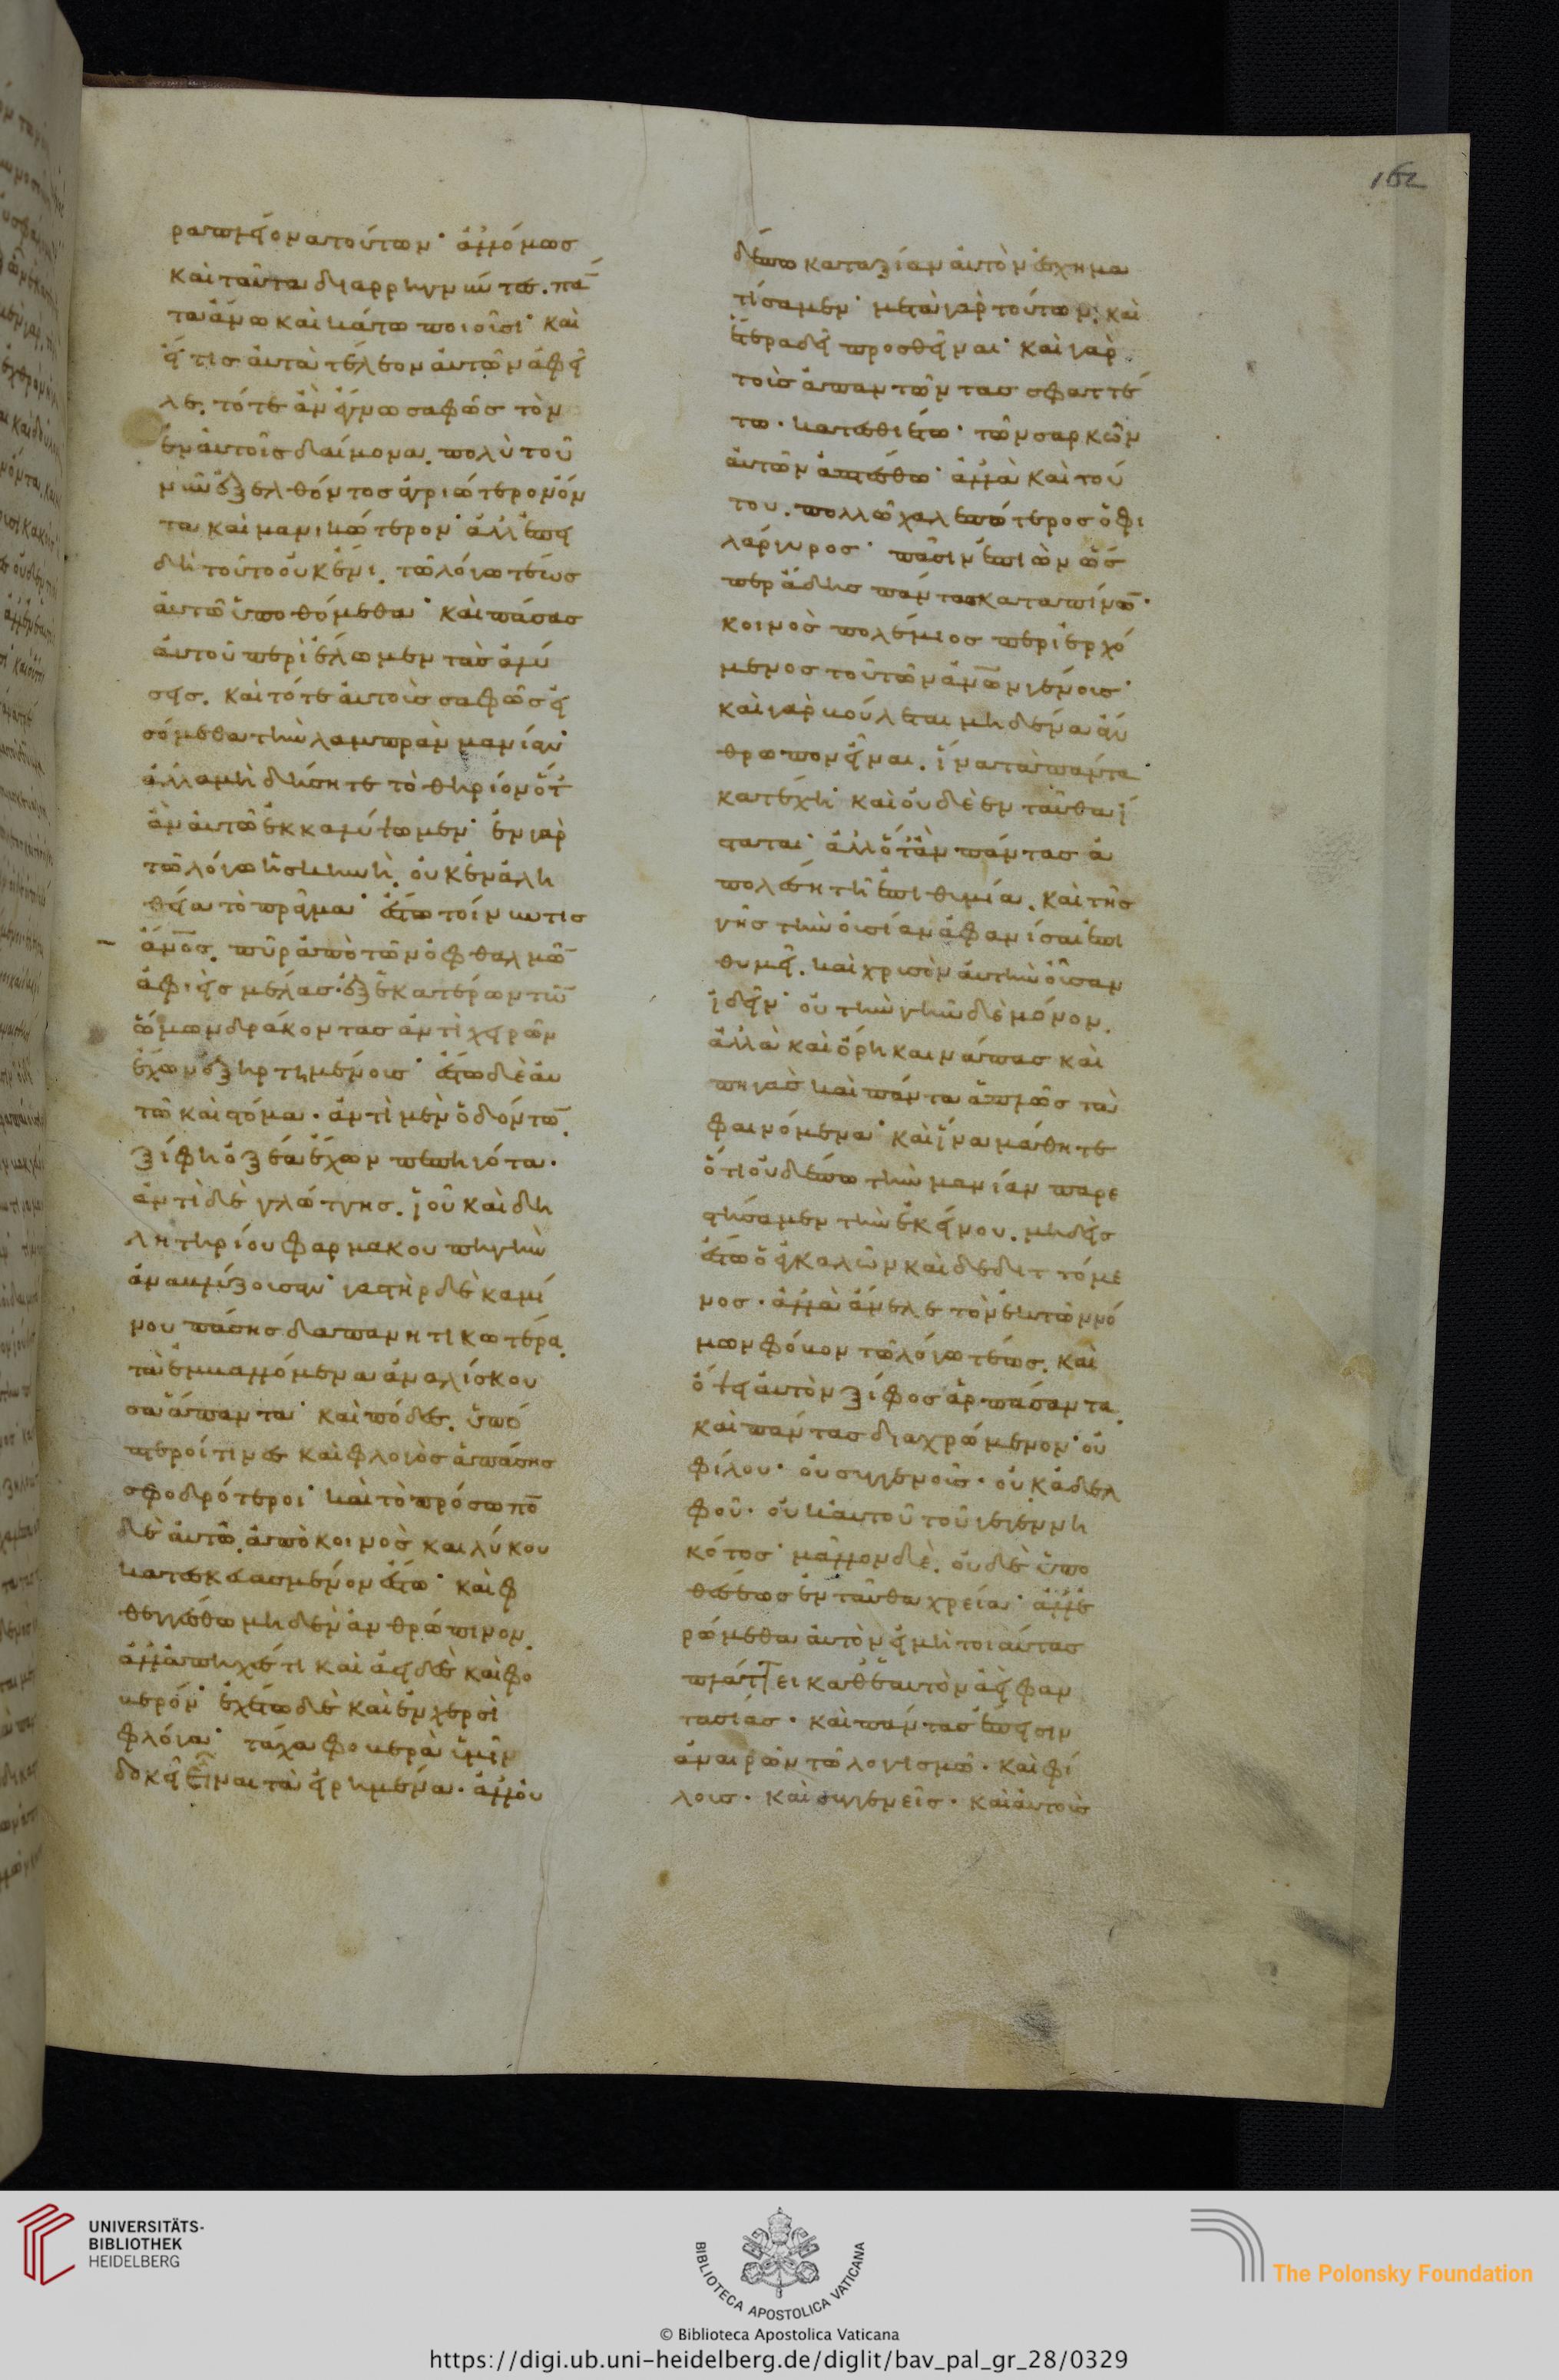 162
ραπλείονα τούτων· ἀλλ' ὅμως
καὶ ταῦτα διαρρηγνῦντες. πά̄
τα ἄνω καὶ κάτω ποιοῦσι· καὶ
εἴ τις αὐτὰ τέλεον αὐτῶν ἀφεῖ
λε. τότε ἂν εἴγνω σαφῶς τὸν
ἐν αὐτοῖς δαίμονα. πολὺ τοῦ
νῦν ἐξελθόντος ἀγριώτερον ὄν
τα καὶ μανικώτερον· ἀλλ' ἐπει
δὴ τοῦτο οὐκ ἔνι. τῶ λόγω τέως
αὐτῶ ὑποθόμεθα· καὶ πάσας
αὐτοῦ περιέλωμεν τὰς ἁλύ
σεις. καὶ τότε αὐτοὺς σαφῶς εἰ
σόμεθα τὴν λαμπρὰν μανίαν·
ἀλλα μὴ δείσητε τὸ θηρίον ὅτ'
ἂν αὐτῶ ἐκκαλύψωμεν· ἐν γὰρ
τῶ λόγω ἡ σκηνὴ. οὐκ ἐν ἀλη
θεία τὸ πρᾶγμα· ἔστω τοίνυν τις
ἄν̄ο̄ς. πῦρ ἀπὸ τῶν ὀφθαλμῶ̄
ἀφιεὶς μέλας· ἐξ ἑκατέρων τῶ̄
ὤμων δράκοντας ἀντὶ χειρῶν
ἔχων ἐξηρτημένους· ἔστω δὲ αὐ
τῶ καὶ στόμα. ἀντὶ μὲν ὀδόντω̄.
ξίφη ὀξέα ἔχων πεπηγότα.
ἀντὶ δὲ γλώττης. ἰοῦ καὶ δη
λητηρίου φαρμάκου πηγὴν
ἀναβλύζουσαν· γαστὴρ δὲ καμί
νου πάσης δαπανητικωτέρα.
τὰ ἐμβαλλόμενα ἀναλίσκου
σα ἅπαντα· καὶ πόδες. ὑπό
πτεροί τινες καὶ φλογὸς ἁπάσης
σφοδρότεροι· καὶ τὸ πρόσωπο̄
δὲ αὐτῶ. ἀπὸ κυνὸς και λύκου
κατεσκευασμένον ἔστω· καὶ φ
θεγγέσθω μηδὲν ἀνθρώπινον.
ἀλλ' ἀπηχές τι καὶ ἀειδὲς καὶ φο
βερόν· ἐχέτω δὲ καὶ ἐν χερσὶ
φλόγα· τάχα φοβερὰ ὑμῖν
δοκεῖ εἶναι τὰ εἰρημένα. ἀλλ' οὐ
δέπω κατ' ἀξίαν αὐτὸν ἐσχημα
τίσαμεν· μετὰ γὰρ τούτων. καὶ
ἕτερα δεῖ προσθεῖναι· καὶ γὰρ
τοὺς ἀπαντῶντας σφαττέ
τω. κατεσθιέτω· τῶν σαρκῶν
αὐτῶν ἁπτέσθω· ἀλλὰ καὶ τού
του. πολλῶ χαλεπώτερος ὁ φι
λάργυρος· πᾶσιν ἐπιὼν ὥσ
περ ἅδης πάντας καταπίνω̄.
κοινὸς πολέμιος περιερχό
μενος τοῦ τῶν ἀν̄ω̄ν γένους·
καὶ γὰρ βούλεται μηδένα ἄν
θρωπον εἶναι. ἵνα τὰ πάντα
κατέχη· καὶ οὐδὲ ἐνταῦθα ἵ
σταται· ἀλλ' ὅτ' ἂν πάντας ἀ
πολέση τῆ ἐπιθυμία. καὶ τῆς
γῆς τὴν οὐσίαν ἀφανίσαι ἐπι
θυμεῖ. καὶ χρυσὸν αὐτὴν οὖσαν
ἰδεῖν· οὐ τὴν γῆν δὲ μόνον.
ἀλλὰ καὶ ὄρη και νάπας καὶ
πηγὰς καὶ πάντα ἁπλῶς τὰ
φαινόμενα· καὶ ἵνα μάθητε
ὅτι οὐδέπω τὴν μανίαν παρε
στήσαμεν τὴν ἐκείνου. μηδεὶς
ἔστω ὁ ἐγκαλῶν καὶ δεδιττόμε
νος. ἀλλὰ ἄνελε τὸν ἐκ τῶν νό
μων φόβον τῶ λόγω τέως. καὶ
ὄψει αὐτὸν ξίφος ἁρπάσαντα.
καὶ πάντας διαχρώμενον· οὐ
φίλου. οὐ συγγενοῦς. οὐκ ἀδελ
φοῦ. οὐκ αὐτοῦ τοῦ γεγεννη
κότος· μᾶλλον δὲ. οὐδὲ ὑπο
θέσεως ἐνταῦθα χρεία· ἀλλ' ἐ
ρώμεθα αὐτὸν εἰ μὴ τοιαύτας
πλάττει καθ' ἑαυτὸν ἀεὶ φαν
τασίας. καὶ πάντας ἔπεισιν
ἀναιρῶν τῶ λογισμῶ. καὶ φί
λους. καὶ συγγενεῖς. καὶ αὐτοὺς
UNIVERSITÄTS-
BIBLIOTHEK
HEIDELBERG
BIBLIOTECA APOSTOLICA VATICANA
The Polonsky Foundation
© Biblioteca Apostolica Vaticana
https://digi.ub.uni-heidelberg.de/diglit/bav_pal_gr_28/0329